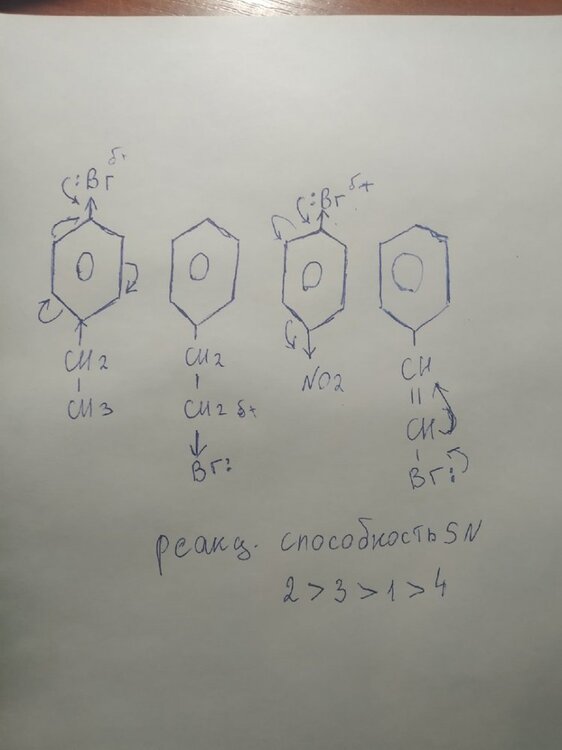 :Br δ+
:Br δ+
CH2
CH3
CH2
CH2 δ+
Br:
NO2
CH
||
CH
Br:
реакц. способность SN
2>3>1>4